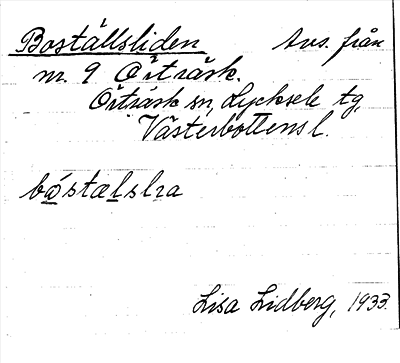 Boställsliden Avs. från
nr. 9 Örträsk.
Örträsk sn, Lycksele tg,
Västerbottens l.
Lisa Lidberg, 1933.